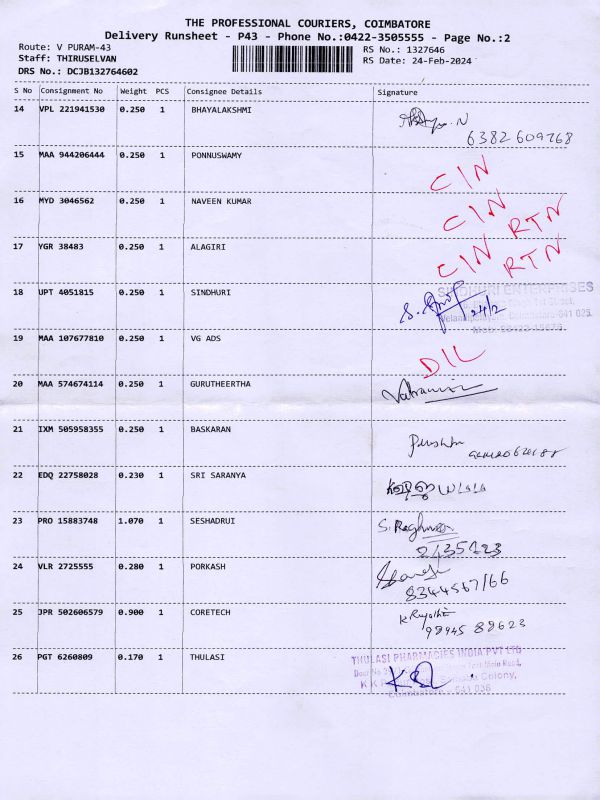 THE PROFESSIONAL COURIERS, COIMBATORE
Delivery Runsheet - P43 - Phone No.:0422-3505555 - Page No.:2
Route: V PURAM-43 RS No.: 1327646
Staff: THIRUSELVAN RS Date: 24-Feb-2024
DRS No.: DCJB132764602
S No Consignment No Weight PCS Consignee Details Signature
14 VPL 221941530 0.250 1 BHAYALAKSHMI
6382609768
15 MAA 944206444 0.250 1 PONNUSWAMY CIN
16 MYD 3046562 0.250 1 NAVEEN KUMAR CIN RTN
17 YGR 38483 0.250 1 ALAGIRI CIN RTN
18 UPT 4051815 0.250 1 SINDHURI SINDHURI ENTERPRISES
24/2
Coimbatore-641 025
19 MAA 107677810 0.250 1 VG ADS DIL
20 MAA 574674114 0.250 1 GURUTHEERTHA
21 IXM 505958355 0.250 1 BASKARAN
22 EDQ 22758028 0.230 1 SRI SARANYA
23 PRO 15883748 1.070 1 SESHADRUI S. Raghu
24 VLR 2725555 0.280 1 PORKASH
25 JPR 502606579 0.900 1 CORETECH
98945 88623
26 PGT 6260809 0.170 1 THULASI THULASI PHARMACIES INDIA PVT LTD
Main Road,
Colony,
Coimbatore - 641 038